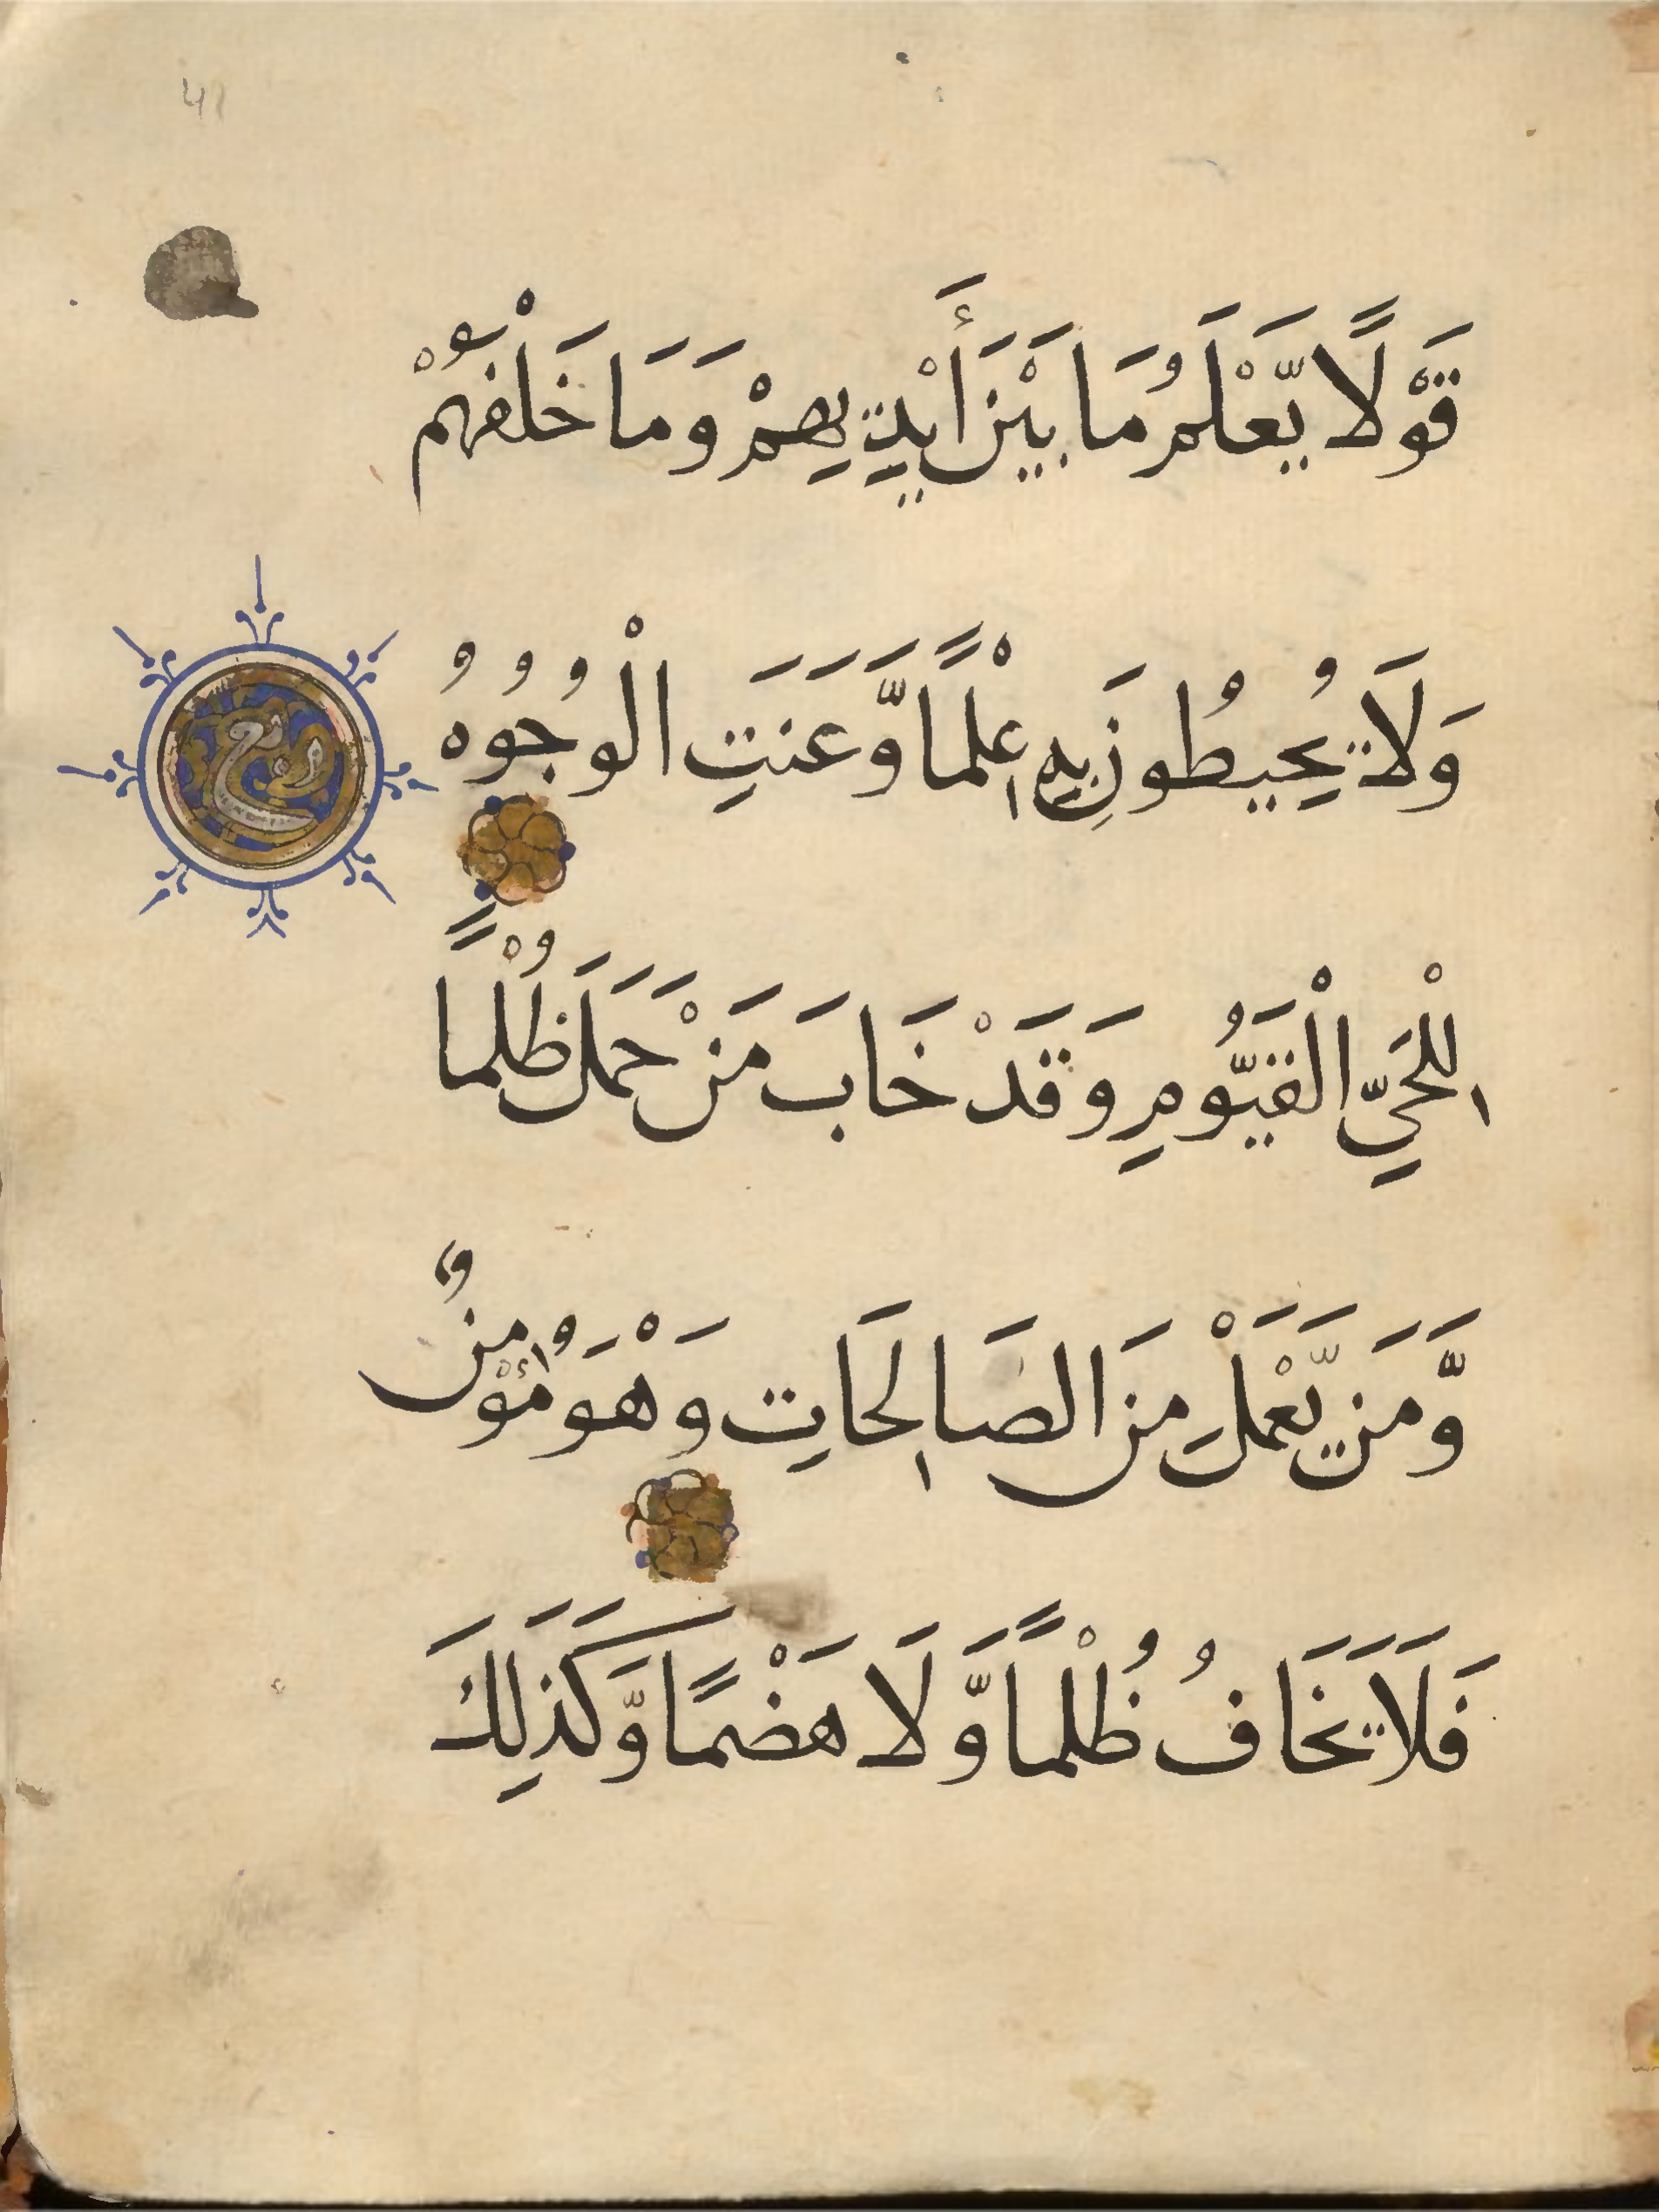 قَوْلًا يَّعْلَمُ مَا بَيْنَ أَيْدِيهِمْ وَمَا خَلْفَهُمْ
وَلَا يُحِيطُونَ بِهِ عِلْمًا وَّعَنَتِ الْوُجُوهُ
لِلْحَيِّ الْقَيُّومِ وَقَدْ خَابَ مَنْ حَمَلَ ظُلْمًا
وَّمَن يَّعْمَلْ مِنَ الصَالِحَاتِ وَهْوَ مُؤْمِنٌ
فَلَا يَخَافُ ظُلْمًا وَّلَا هَضْمًا وَّكَذَلِكَ